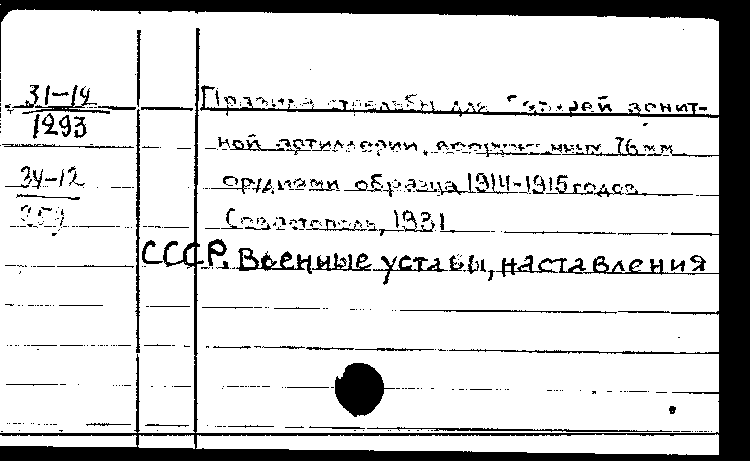 31-12
1293
34-12
259
Правила стрельбы для батарей зенит-
ной артиллерии, вооруженных 76 мм
орудиями образца 1914-1915 годов.
Севастополь, 1931.
СССР. Военные уставы, наставления